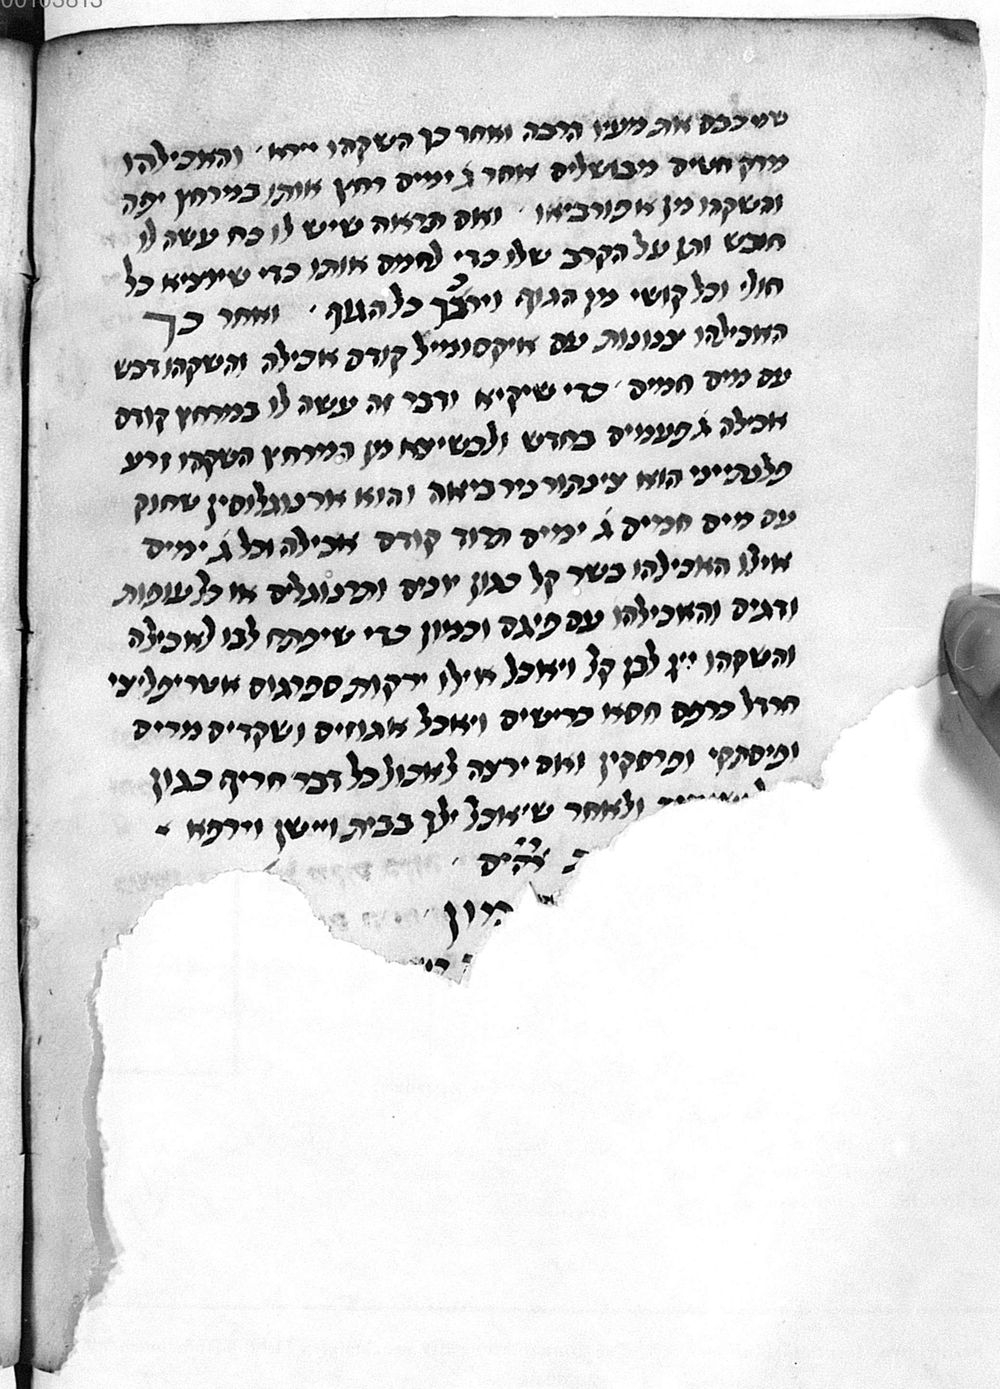 שמיככס את מעיו הרבה ואחר כך השקהו יירא׳ והאכילהו
מרק חטים מבושלים אחר ג׳ ימים רחץ אותו במרחץ יפה
והשקהו מן אפורביאו׳ ואם תראה שיש לו כח עשה לו
חובש ותן על הקרב שלו כדי לחמם אותו כדי שיוציא כל
חולי וכל קושי מן הגוף וירכך כל הגוף׳ ואחר כך
האכילהו צנונות עם איקסומייל קודם אכילה והשקהו דבש
עם מים חמים׳ כדי שיקיא ודבר זה עשה לו במרחץ קודם
אכילה ג׳ פעמים בחדש ולכשיצא מן המרחץ השקהו זרע
פלנטייני הוא צינקורנירביאה והוא ארנוגלוסין שחוק
עם מים חמים ג׳ ימים תדיר קודם אכילה וכל ג׳ ימים
אילו האכילהו בשר קל כגון יונים ותרנוגלים או כל עופות
ודגים והאכילהו עם פיגם וכמון כדי שיפתח לבו לאכילה
והשקהו יין לבן קל ויאכל אילו ירקות ספרגוס אטריפליצי
חרדל כרפס חסא כרישים ויאכל אגוזים ושקדים מרים
ופיסתקי ופרסקין ואם ירצה לאכול כל דבר חריף כגון
ולאחר שיאכל ילך בבית ויישן וירפא
הרון